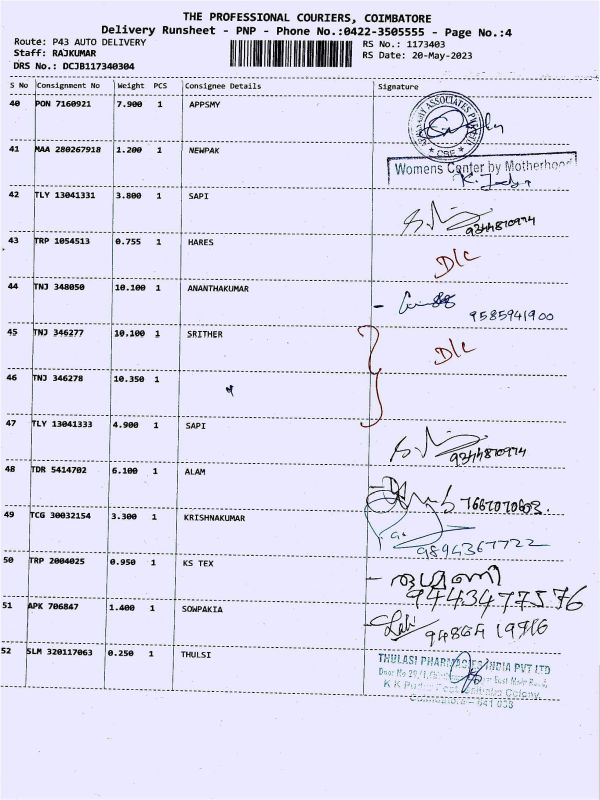 THE PROFESSIONAL COURIERS, COIMBATORE
Delivery Runsheet - PNP - Phone No.:0422-3505555 - Page No.:4
Route: P43 AUTO DELIVERY
RS No.: 1173403
Staff: RAJKUMAR
RS Date: 20-May-2023
DRS No.: DCJB117340304
S No Consignment No Weight PCS Consignee Details Signature
40 PON 7160921 7.900 1 APPSMY
CBE
41 MAA 280267918 1.200 1 NEWPAK
Womens Center by Motherhood
42 TLY 13041331 3.800 1 SAPI
9344870974
43 TRP 1054513 0.755 1 HARES D/C
44 TNJ 348050 10.100 1 ANANTHAKUMAR
9585941900
45 TNJ 346277 10.100 1 SRITHER D/C
46 TNJ 346278 10.350 1
47 TLY 13041333 4.900 1 SAPI
9344870974
48 TDR 5414702 6.100 1 ALAM
7667070603.
49 TCG 30032154 3.300 1 KRISHNAKUMAR
9894367722
50 TRP 2004025 0.950 1 KS TEX
9443477576
51 APK 706847 1.400 1 SOWPAKIA
52 SLM 320117063 0.250 1 THULSI
THULASI PHARMACIES INDIA PVT LTD
Coimbatore - 641 038